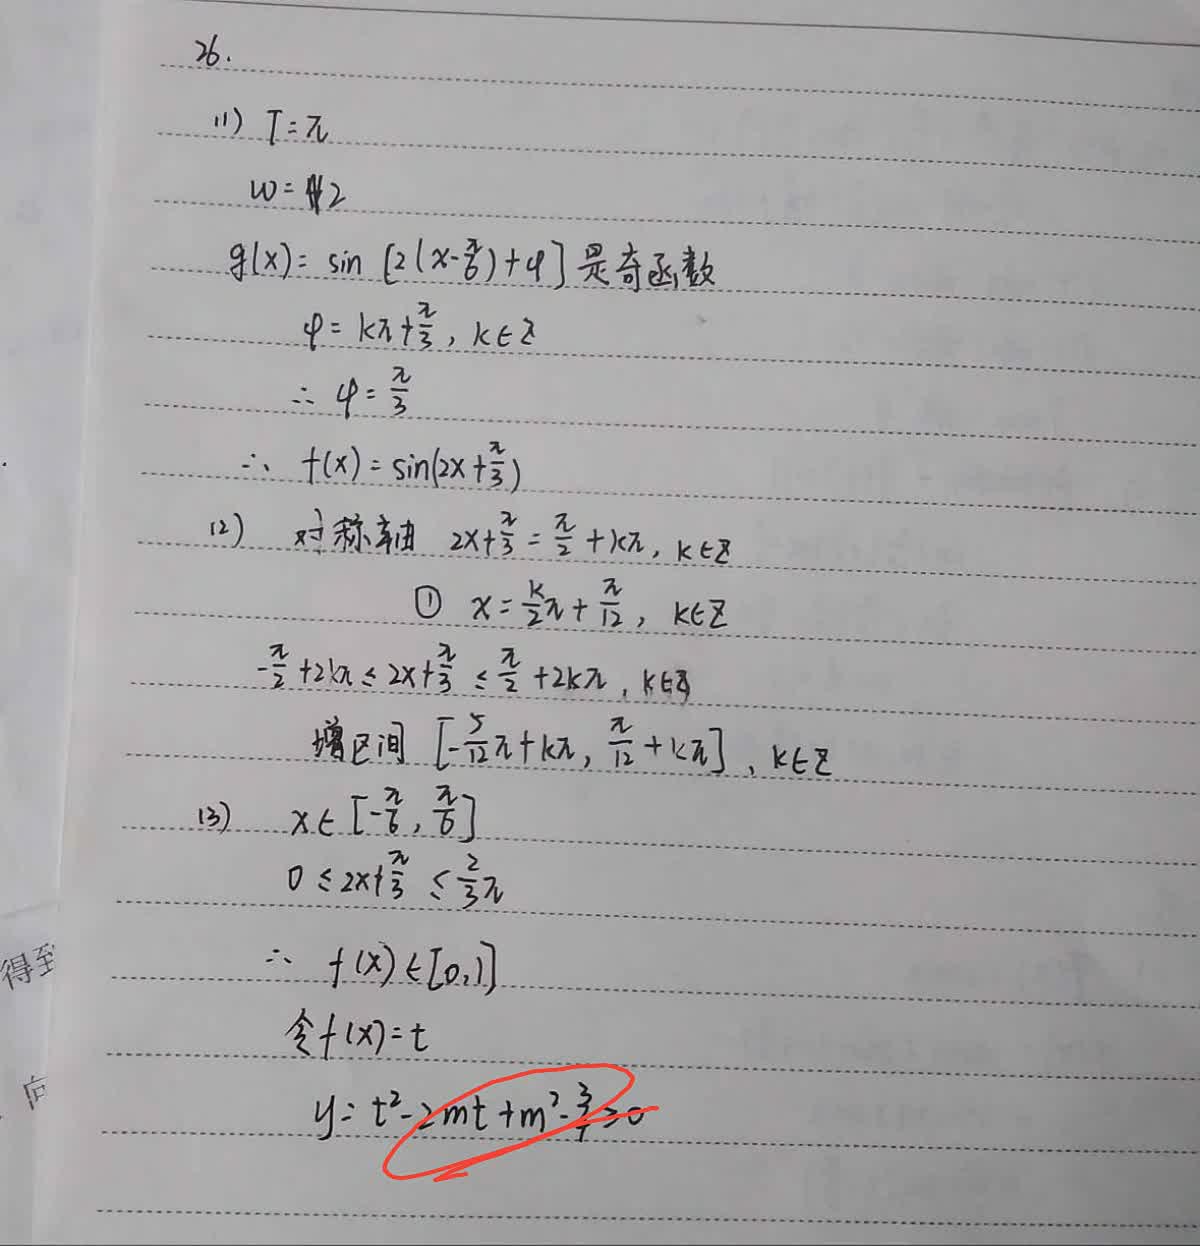 26.
(1) T=π
w=2
g(x)= sin [2(x-π/6)+φ] 是奇函数
φ= kπ+π/3, k∈Z
∴ φ= π/3
∴ f(x)=sin(2x+π/3)
(2) 对称轴 2x+π/3=π/2+kπ, k∈Z
① x=k/2π+π/12, k∈Z
-π/2+2kπ≤2x+π/3≤π/2+2kπ, k∈Z
增区间 [-5/12π+kπ, π/12+kπ], k∈Z
(3) x∈[-π/6, π/6]
0≤2x+π/3≤2/3π
∴ f(x)∈[0,1]
令f(x)=t
y= t²-2mt+m²-3/4≥0
得到
向